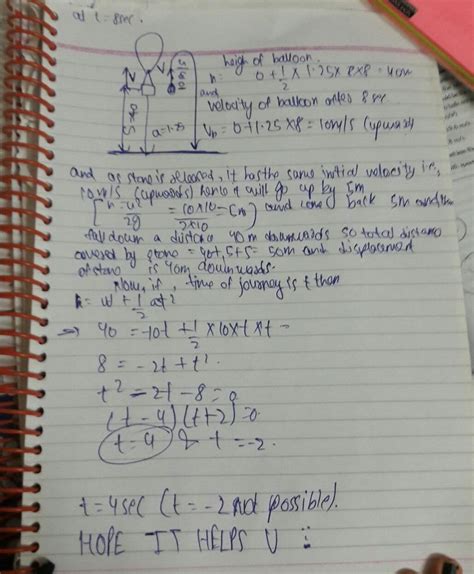 at t = 8sec.
heigh of balloon
h = 0 + 1/2 x 1.25 x 8 x 8 = 40m
and
velocity of balloon after 8 sec
a = 1.25
VB = 0 + 1.25 x 8 = 10m/s (upward)
and as stone is released, it has the same initial velocity i.e,
10m/s (upwards) hence it will go up by 5m
[h = u²/2g = 10x10/2x10 = 5m] and come back 5m and then
fall down a distance 40m downwards so total distance
covered by stone = 40+5+5 = 50m and displacement
of stone is 40m downwards.
Now, if, time of journey is t then
h = ut + 1/2 at²
⇒ 40 = -10t + 1/2 x 10 x t x t
8 = -2t + t²
t² - 2t - 8 = 0
(t - 4) (t + 2) = 0
t = 4 & t = -2.
t = 4 sec (t = -2 not possible).
HOPE IT HELPS U :